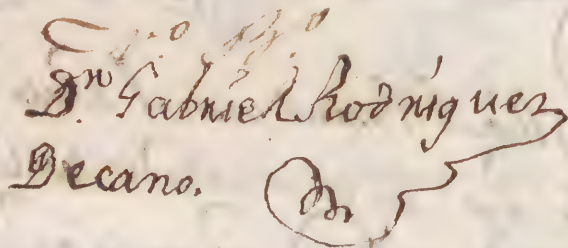 Dn. Gabriel Rodriguez
Decano.